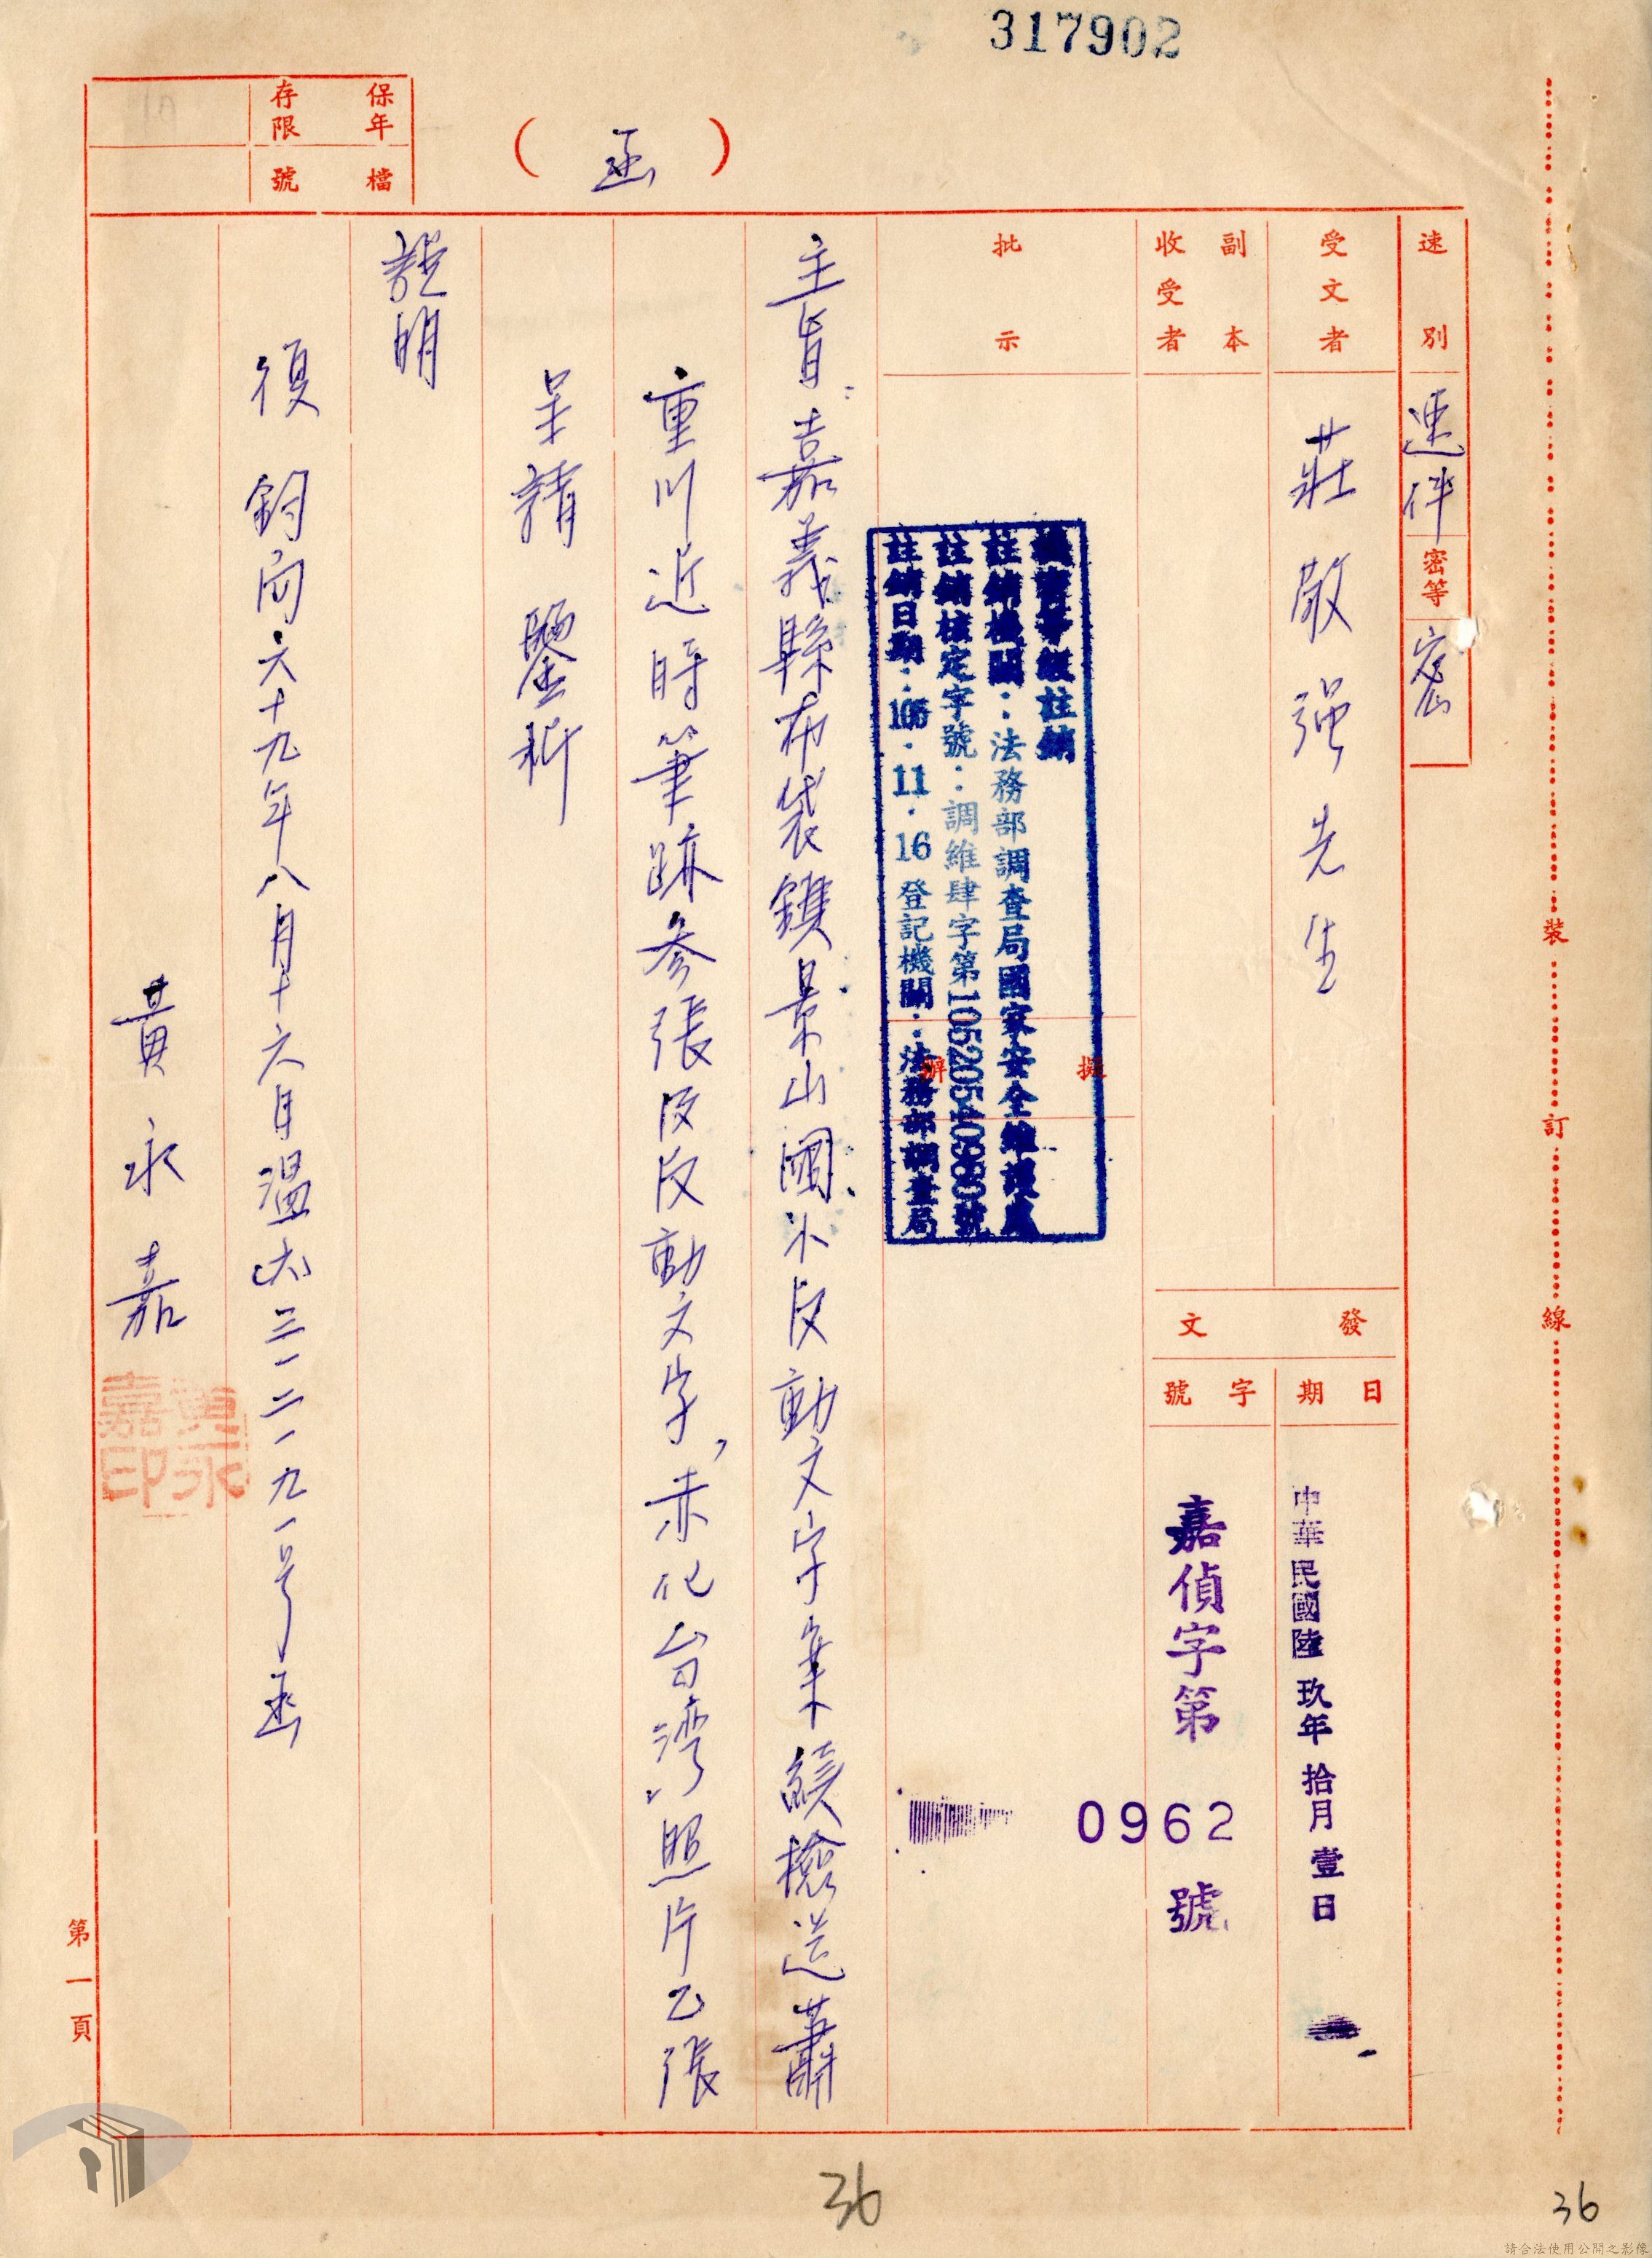 317902
(函)
保存年限
檔號
速別
速件
密等
密
受文者
莊敬強先生
副本收受者
發文
日期
中華民國陸玖年拾月壹日
字號
嘉偵字第0962號
批示
擬辦
機密等級註銷
註銷機關：法務部調查局國家安全維護處
註銷核定字號：調維肆字第10520540980號
註銷日期：105.11.16登記機關：法務部調查局
主旨：嘉義縣布袋鎮景山國小反動文字案續檢送蕭
重川近時筆跡參張及反動文字，赤化台灣照片乙張
呈請鑒析
說明
復鈞局六十九年八月十六日溫六三一二一九一号函
黃永嘉
黃永嘉印
第一頁
裝訂線
36
36
請合法使用公開之影像